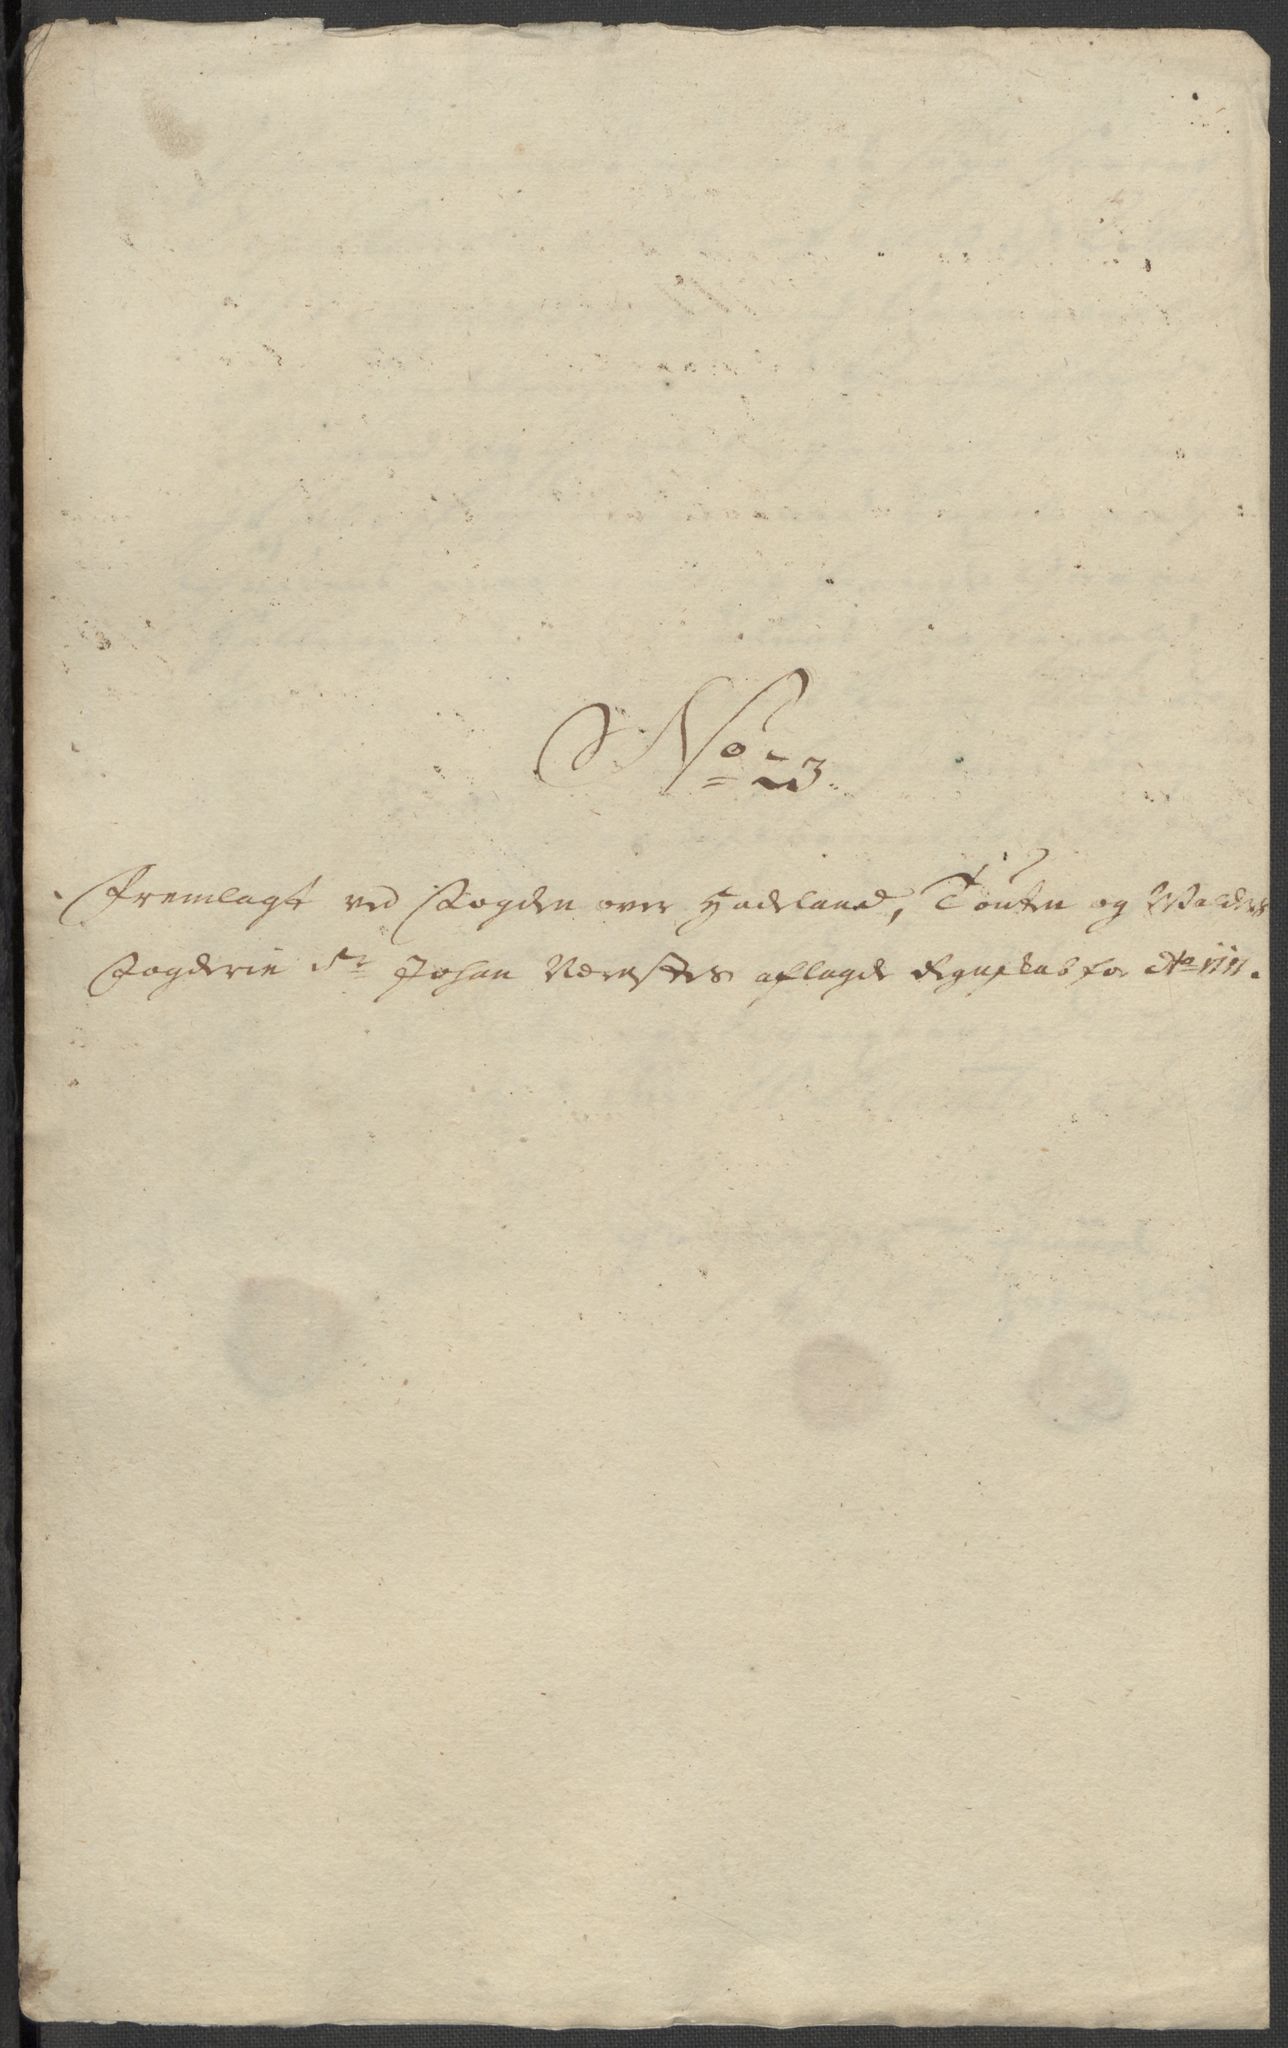 No 23.
Fremlagt ved Fogden over Hadeland, Toten og Walders
Fogderie Sr Johan Næristes aflagde Regnskab for Ao 1711.